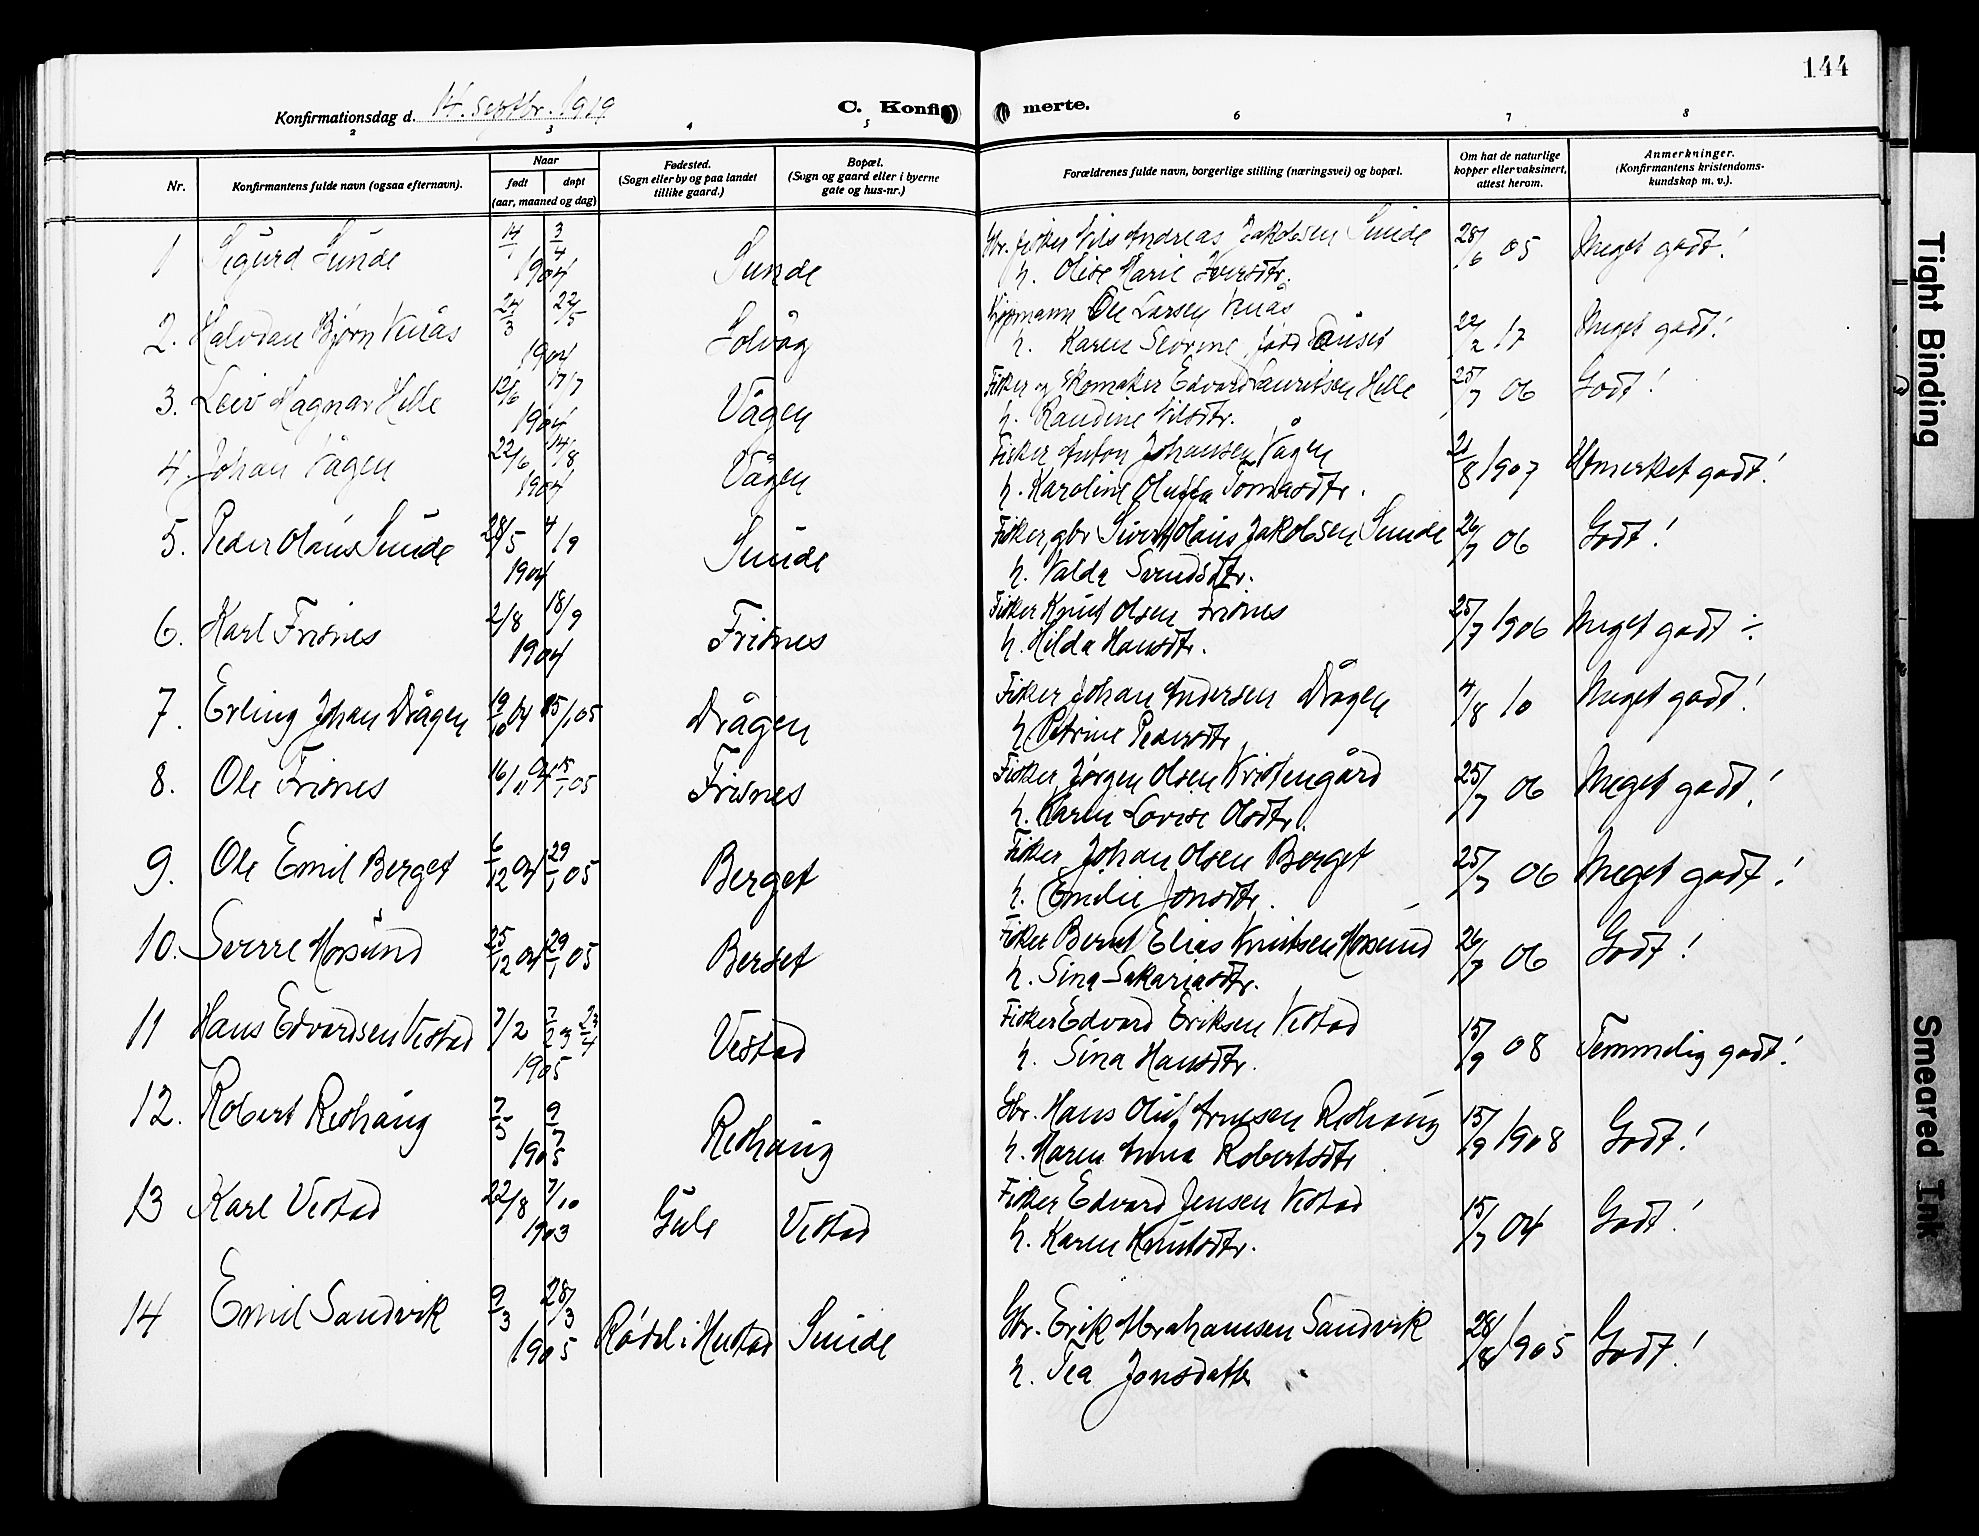 144
Konfirmationsdag d. 14. septbr. 1919
C. Konfirmerte.
2 3 4 5 6 7 8
Nr.
Konfirmantens fulde navn (ogsaa efternavn).
Naar
født døpt
(aar, maaned og dag)
Fødested.
(Sogn eller by og paa landet
tillike gaard.)
Bopæl.
(Sogn og gaard eller i byerne
gate og hus-nr.)
Forældrenes fulde navn, borgerlige stilling (næringsvei) og bopæl.
Om hat de naturlige
kopper eller vaksinert,
attest herom.
Anmerkninger.
(Konfirmantens kristendoms-
kundskap m. v.).
1 Sigurd Sunde 14/1 3/4 1904 Sunde Gbr. fisker Nils Andreas Jakobsen Sunde 28/6 05 Meget godt!
h. Olise Marie Iversdtr.
2. Halvdan Bjørn Vikås 24/3 22/5 1904 Solvåg Kjøpmann Ole Larsen Vikås 22/2 17 Meget godt!
h. Karen Severine født
3. Leiv Ragnar Helle 12/6 17/7 1904 Vågen Fisker og skomaker Edvard Lauritsen Helle 25/7 06 Godt!
h. Randine Nilsdtr.
4. Johan Vågen 22/6 14/8 1904 Vågen Fisker Anton Johansen Vågen 21/8 1907 Utmerket godt!
h. Karoline Oluffa Tomasdtr.
5. Peder Olaus Sunde 28/5 4/9 1904 Sunde Fisker, gbr Sivert Olaus Jakobsen Sunde 26/7 06 Godt!
h. Valda Svendsdtr.
6. Karl Frisnes 2/8 18/9 1904 Frisnes Fisker Knut Olsen Frisnes 25/7 1906 Meget godt ÷
h. Hilda Hansdtr.
7. Erling Johan Drågen 19/10 04 15/1 05 Drågen Fisker Johan Andersen Drågen 4/8 10 Meget godt!
h Petrine Pedersdtr
8. Ole Frisnes 16/11 04 15/1 05 Frisnes Fisker Jørgen Olsen Kristengård 25/7 06 Meget godt!
h. Karen Lovise Olsdtr.
9. Ole Emil Berget 6/12 04 29/1 05 Berget Fisker Johan Olsen Berget 25/7 06 Meget godt!
h. Emilie Jonsdtr.
10. Sverre Horsund 25/12 04 29/1 05 Berset Fisker Bernt Elias Knutsen Horsund 26/7 06 Godt!
h. Sina Sakariasdtr.
11 Hans Edvardsen Vestad 7/2 7/2 23/4 1905 Vestad Fisker Edvard Eriksen Vestad 15/9 08 Temmelig godt!
h. Sina Hansdtr.
12. Robert Rishaug 7/5 9/7 1905 Rishaug Gbr. Hans Oluf Arnesen Rishaug 15/9 1908 Godt!
h. Maren Anna Robertsdtr
13 Karl Vestad 22/8 7/10 1903 Gule Vestad Fisker Edvard Jensen Vestad 15/7 04 Godt!
h. Karen Knutsdtr.
14 Emil Sandvik 9/3 28/3 1905 Rødal i Hustad Sunde Gbr. Erik Abrahamsen Sandvik 28/8 1905 Godt!
h. Tea Jonsdatter
Tight Binding
Smeared Ink